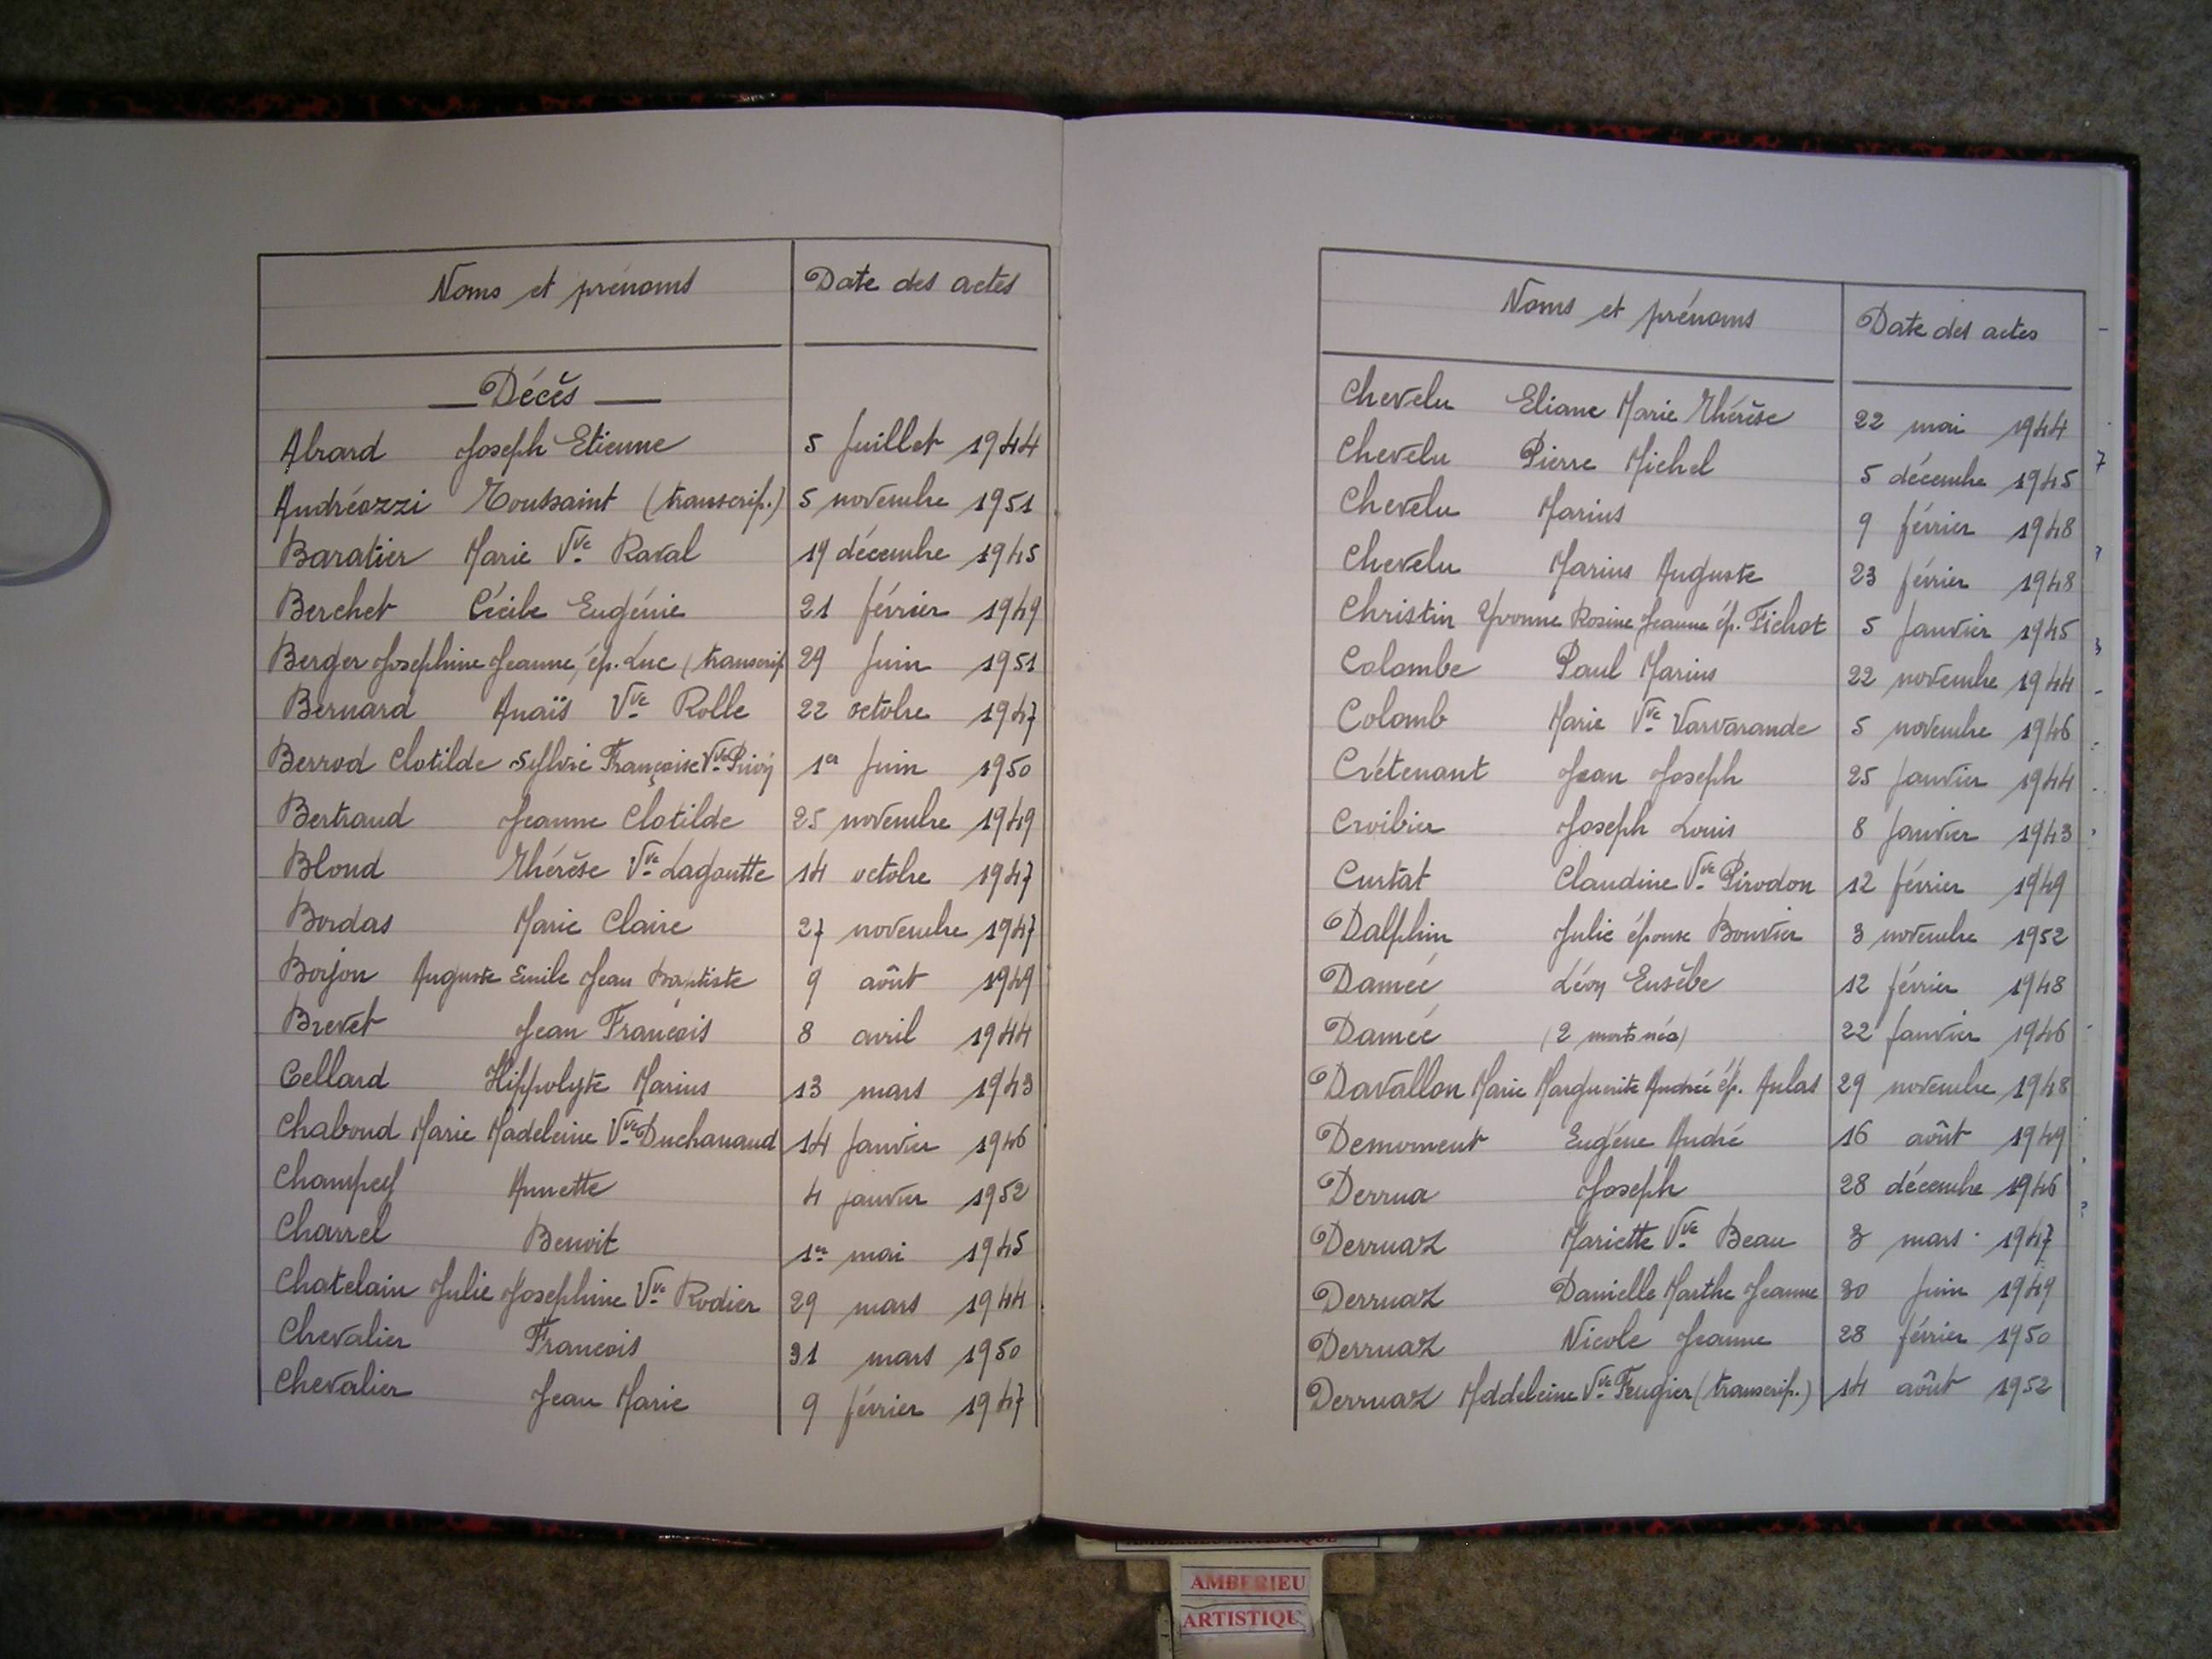 Noms et prénoms Date des actes
Décès
Abrard Joseph Etienne 5 Juillet 1944
Andréozzi Toussaint (transcrip.) 5 novembre 1951
Baratier Marie Vve Raval 19 décembre 1945
Berchet Cécile Eugénie 21 février 1949
Berger Josephine Jeanne, ép. Luc (transcrip 29 Juin 1951
Bernard Anaïs Vve Rolle 22 octobre 1947
Berrod Clotilde Sylvie Françoise Vve 1er Juin 1950
Bertrand Jeanne Clotilde 25 novembre 1949
Blond Thérèse Vve Lagoutte 14 octobre 1947
Bordas Marie Claire 27 novembre 1947
Borjon Auguste Emile Jean Baptiste 9 août 1949
Brevet Jean François 8 avril 1944
Cellard Hippolyte Marius 13 mars 1943
Chaboud Marie Madeleine Vve Duchanaud 14 Janvier 1946
Champey Annette 4 janvier 1952
Charrel Benoit 1er mai 1945
Chatelain Julie Josephine Vve Rodier 29 mars 1944
Chevalier Francois 31 mars 1950
Chevalier Jean Marie 9 février 1947
Noms et prénoms Date des actes
Chevelu Eliane Marie Thérèse 22 mai 1944
Chevelu Pierre Michel 5 décembre 1945
Chevelu Marius 9 février 1948
Chevelu Marius Auguste 23 février 1948
Christin Yvonne Rosine Jeanne ép. Fichot 5 Janvier 1945
Colombe Paul Marius 22 novembre 1944
Colomb Marie Vve Varvarande 5 novembre 1946
Crétenant Jean Joseph 25 Janvier 1944
Croibier Joseph Louis 8 Janvier 1943
Curtat Claudine Vve Pirodon 12 février 1949
Dalphin Julie épouse Bouvier 3 novembre 1952
Damée Léon Eusèbe 12 février 1948
Damée (2 morts nés) 22 Janvier 1946
Davallon Marie Marguerite Andrée ép. Aulas 29 novembre 1948
Demoment Eugéne André 16 août 1949
Derrua Joseph 28 décembre 1946
Derruaz Mariette Vve Beau 3 mars 1947
Derruaz Danielle Marthe Jeanne 30 Juin 1949
Derruaz Nicole Jeanne 28 février 1950
Derruaz Madeleine Vve Feugier (transcrip.) 14 août 1952
AMBERIEU
ARTISTIQU